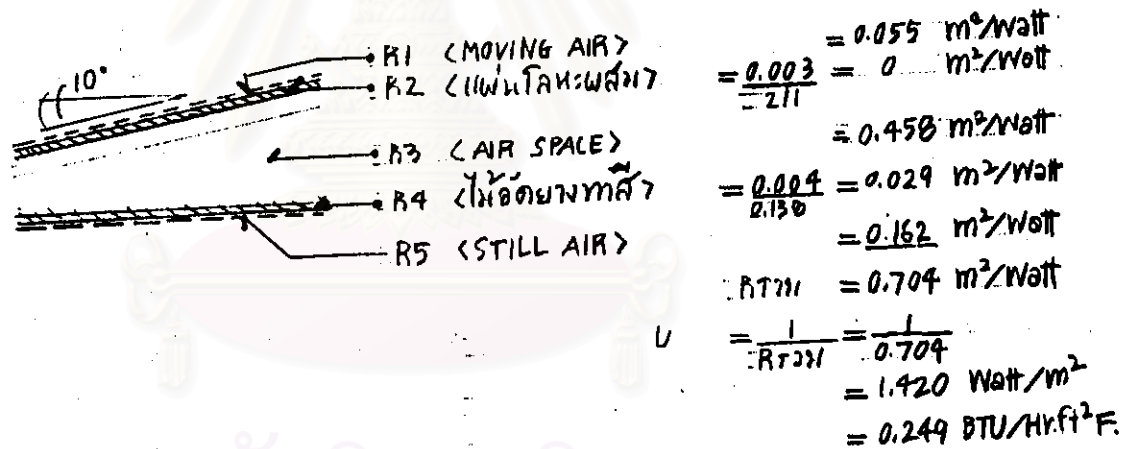 10°
R1 <MOVING AIR> = 0.055 m²/Watt
R2 <แผ่นโลหะผสม> = 0.003 / 211 = 0 m²/Watt
R3 <AIR SPACE> = 0.458 m²/Watt
R4 <ไม้อัดยางทาสี> = 0.004 / 0.138 = 0.029 m²/Watt
R5 <STILL AIR> = 0.162 m²/Watt
Rรวม = 0.704 m²/Watt
U = 1 / Rรวม = 1 / 0.704
= 1.420 Watt/m²
= 0.249 BTU/Hr.ft²F.